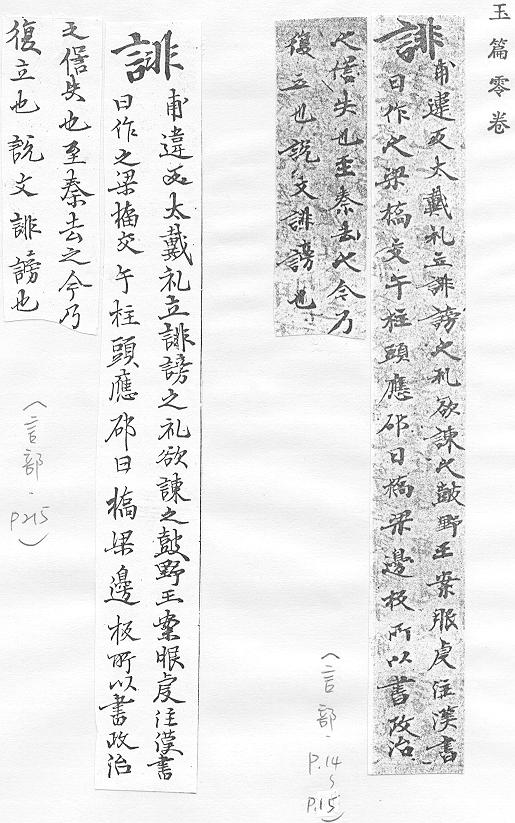 玉篇零卷
誹
甫違反太戴礼立誹謗之礼欲諫之鼓野王案服虔注漢書
曰作之梁橋交午柱頭應邵曰橋梁邊板所以書政治
之𠍴失也至秦去之今乃
復立也說文誹謗也
(言部·
P.14
~
P.15)
誹
甫違反太戴礼立誹謗之礼欲諫之鼓野王案服虔注漢書
曰作之梁橋交午柱頭應邵曰橋梁邊板所以書政治
之𠍴失也至秦去之今乃
復立也說文誹謗也
(言部·
P215)